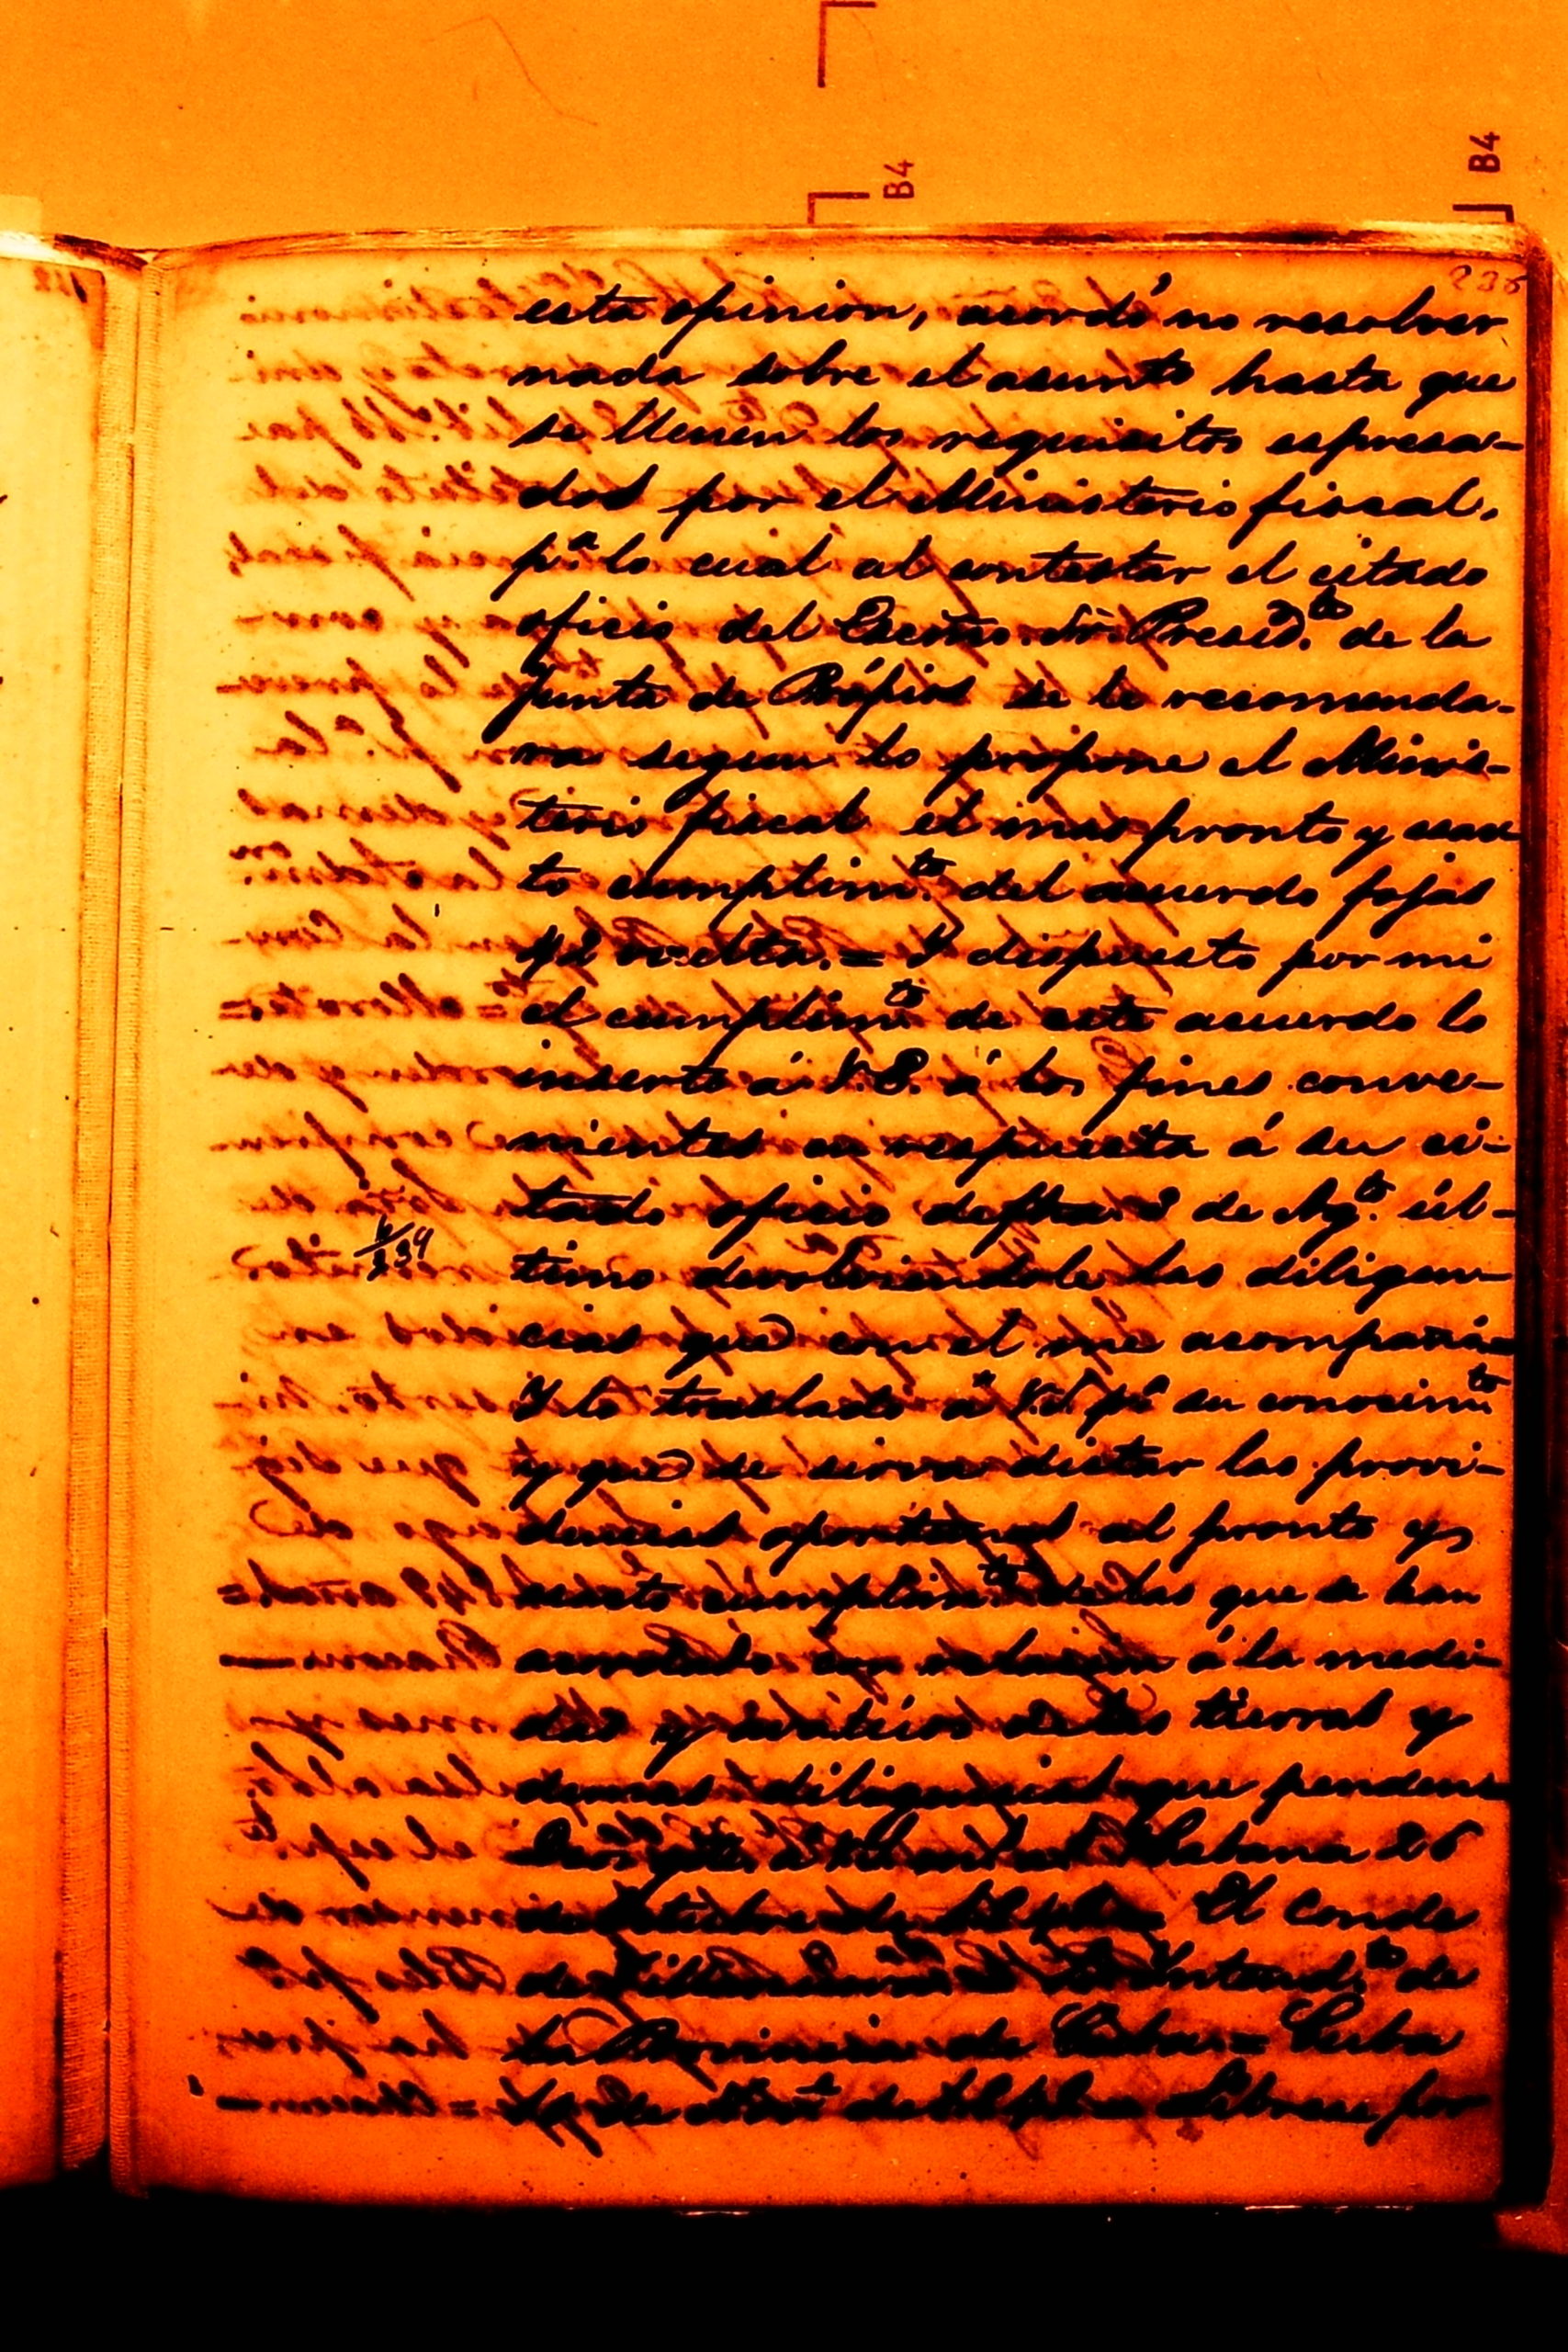 B4
B4
236
esta opinion, acordó no resolver
nada sobre el asunto hasta que
se llenen los requisitos espresa-
dos por el Ministerio fiscal,
pª lo cual al contestar el citado
oficio del Escmo. Sr. Presid.te de la
Junta de Própios se le recomenda-
ra segun lo propone el Minis-
terio fiscal el mas pronto y esac
to cumplim.to del acuerdo fojas
vuelta. = Y dispuesto por mi
el cumplim.to de este acuerdo lo
inserto á V.E. á los fines conve-
nientes en respuesta á su ci-
tado oficio de fha. 3 de Ag.to úl-
timo devolviendole las diligen-
cias que con el me acompaña
Y lo traslado á V.S. pª su conocim.to
y que se sirva dictar las provi-
dencias oportunas al pronto y
esacto cumplim.to de las que se han
acordado con relacion á la medi-
das y de las tierras y
demas diligencias que penden
Habana 26
de El Conde
de Villanueva Intend.te de
la Provincia de Cuba = Cuba
de Librese por